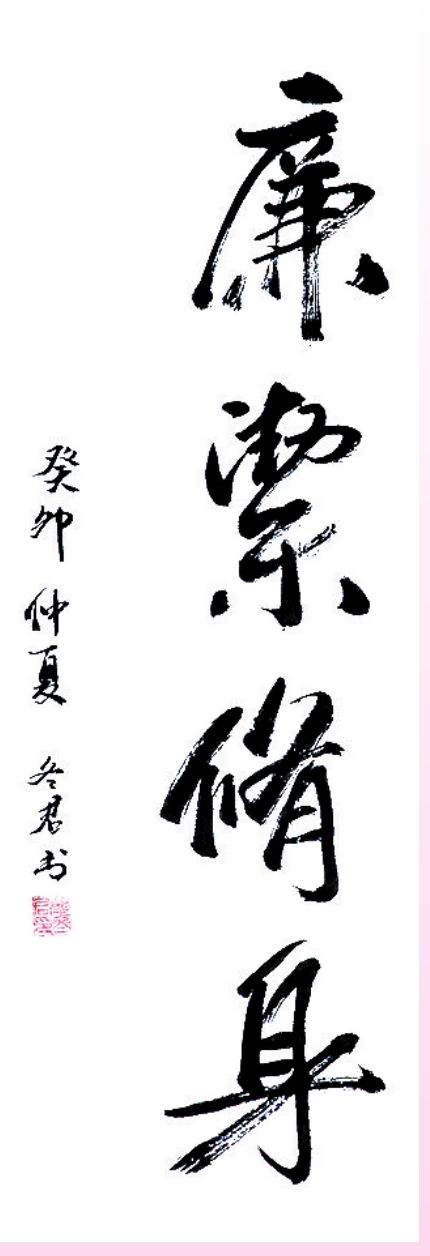 廉潔脩身
癸卯仲夏 冬君书